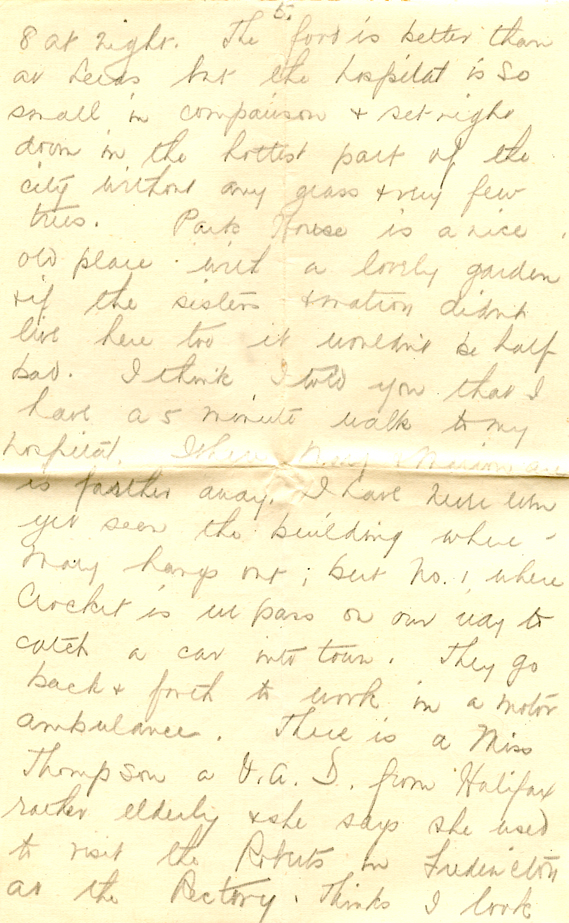 5.
8 at night. The food is better than
at Leeds but the hospital is so
small in comparison & set right
down in the hottest part of the
city without any grass & very few
trees. Park House is a nice
old place with a lovely garden
& if the sisters & matron didn't
live here too it wouldn't be half
bad. I think I told you that I
have a 5 minute walk to my
hospital. Where Mary & Marion are
is farther away. I have never even
yet seen the building where
Mary hangs out; but No. 1, where
Crocket is we pass on our way to
catch a car into town. They go
back & forth to work in a motor
ambulance. There is a Miss
Thompson a V.A.D. from Halifax
rather elderly & she says she used
to visit the Roberts in Fredericton
at the Rectory. Thinks I look